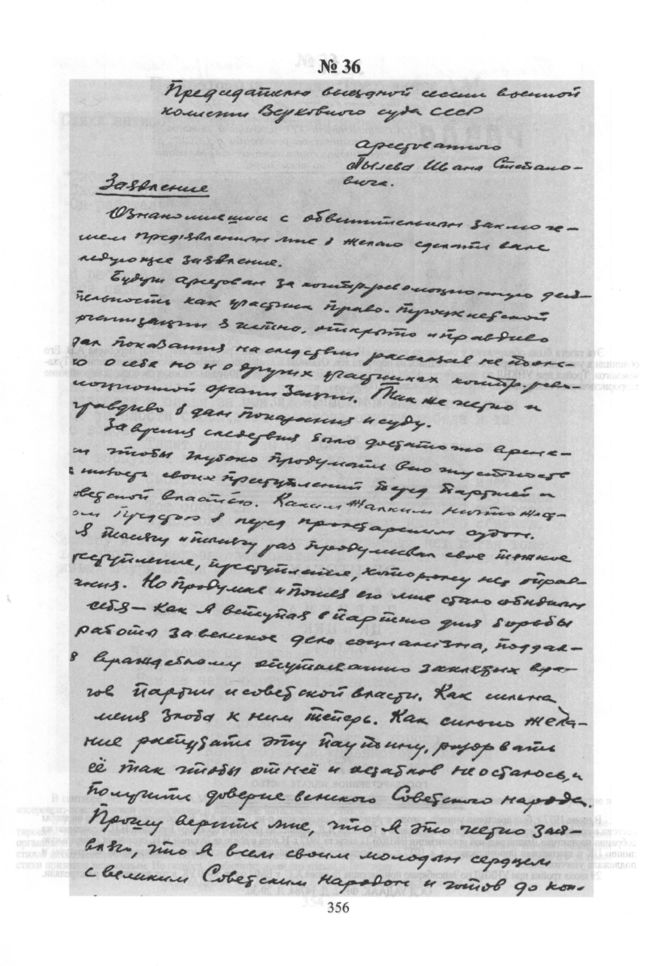 № 36
Председателю выездной сессии военной
колегии Верховного суда СССР
арестованного
Пылева Ивана Степано-
вича.
Заявление
Ознакомившись с обвинительным заключе-
нием пред'явленным мне я желаю сделать вам
следующее заявление.
Будучи арестован за контрреволюционную дея-
тельность как участник право-троцкистской
организации я честно, открыто и правдиво
дал показания на следствии рассказав не только
о себе но и о других участниках контр.рево-
люционной организации. Так же честно и
правдиво я дам показания и суду.
За время следствия было достаточно време-
чтобы глубоко продумать всю
своих преступлений перед партией и
советской властью. Каким жалким ничтожест-
вом предстою я перед пролетарским судом.
Я тысячу и тысячу раз продумывал свое тяжкое
преступление, преступление, которому нет оправ-
дания. Но продумав и поняв его мне стало обидным
себя — как я вступая в партию для борьбы
работы за великое дело социализма, поддал-
я враждебному опутыванию заклятых вра-
гов партии и советской власти. Как сильна
меня злоба к ним теперь. Как сильно жела-
ние распутать эту паутину, разорвать
её так чтобы от неё и остатков не осталось, и
получить доверие великого Советского народа.
Прошу верить мне, что я это честно зая-
вляю, что я всем своим молодым сердцем
с великим Советским народом и готов до кон-
356